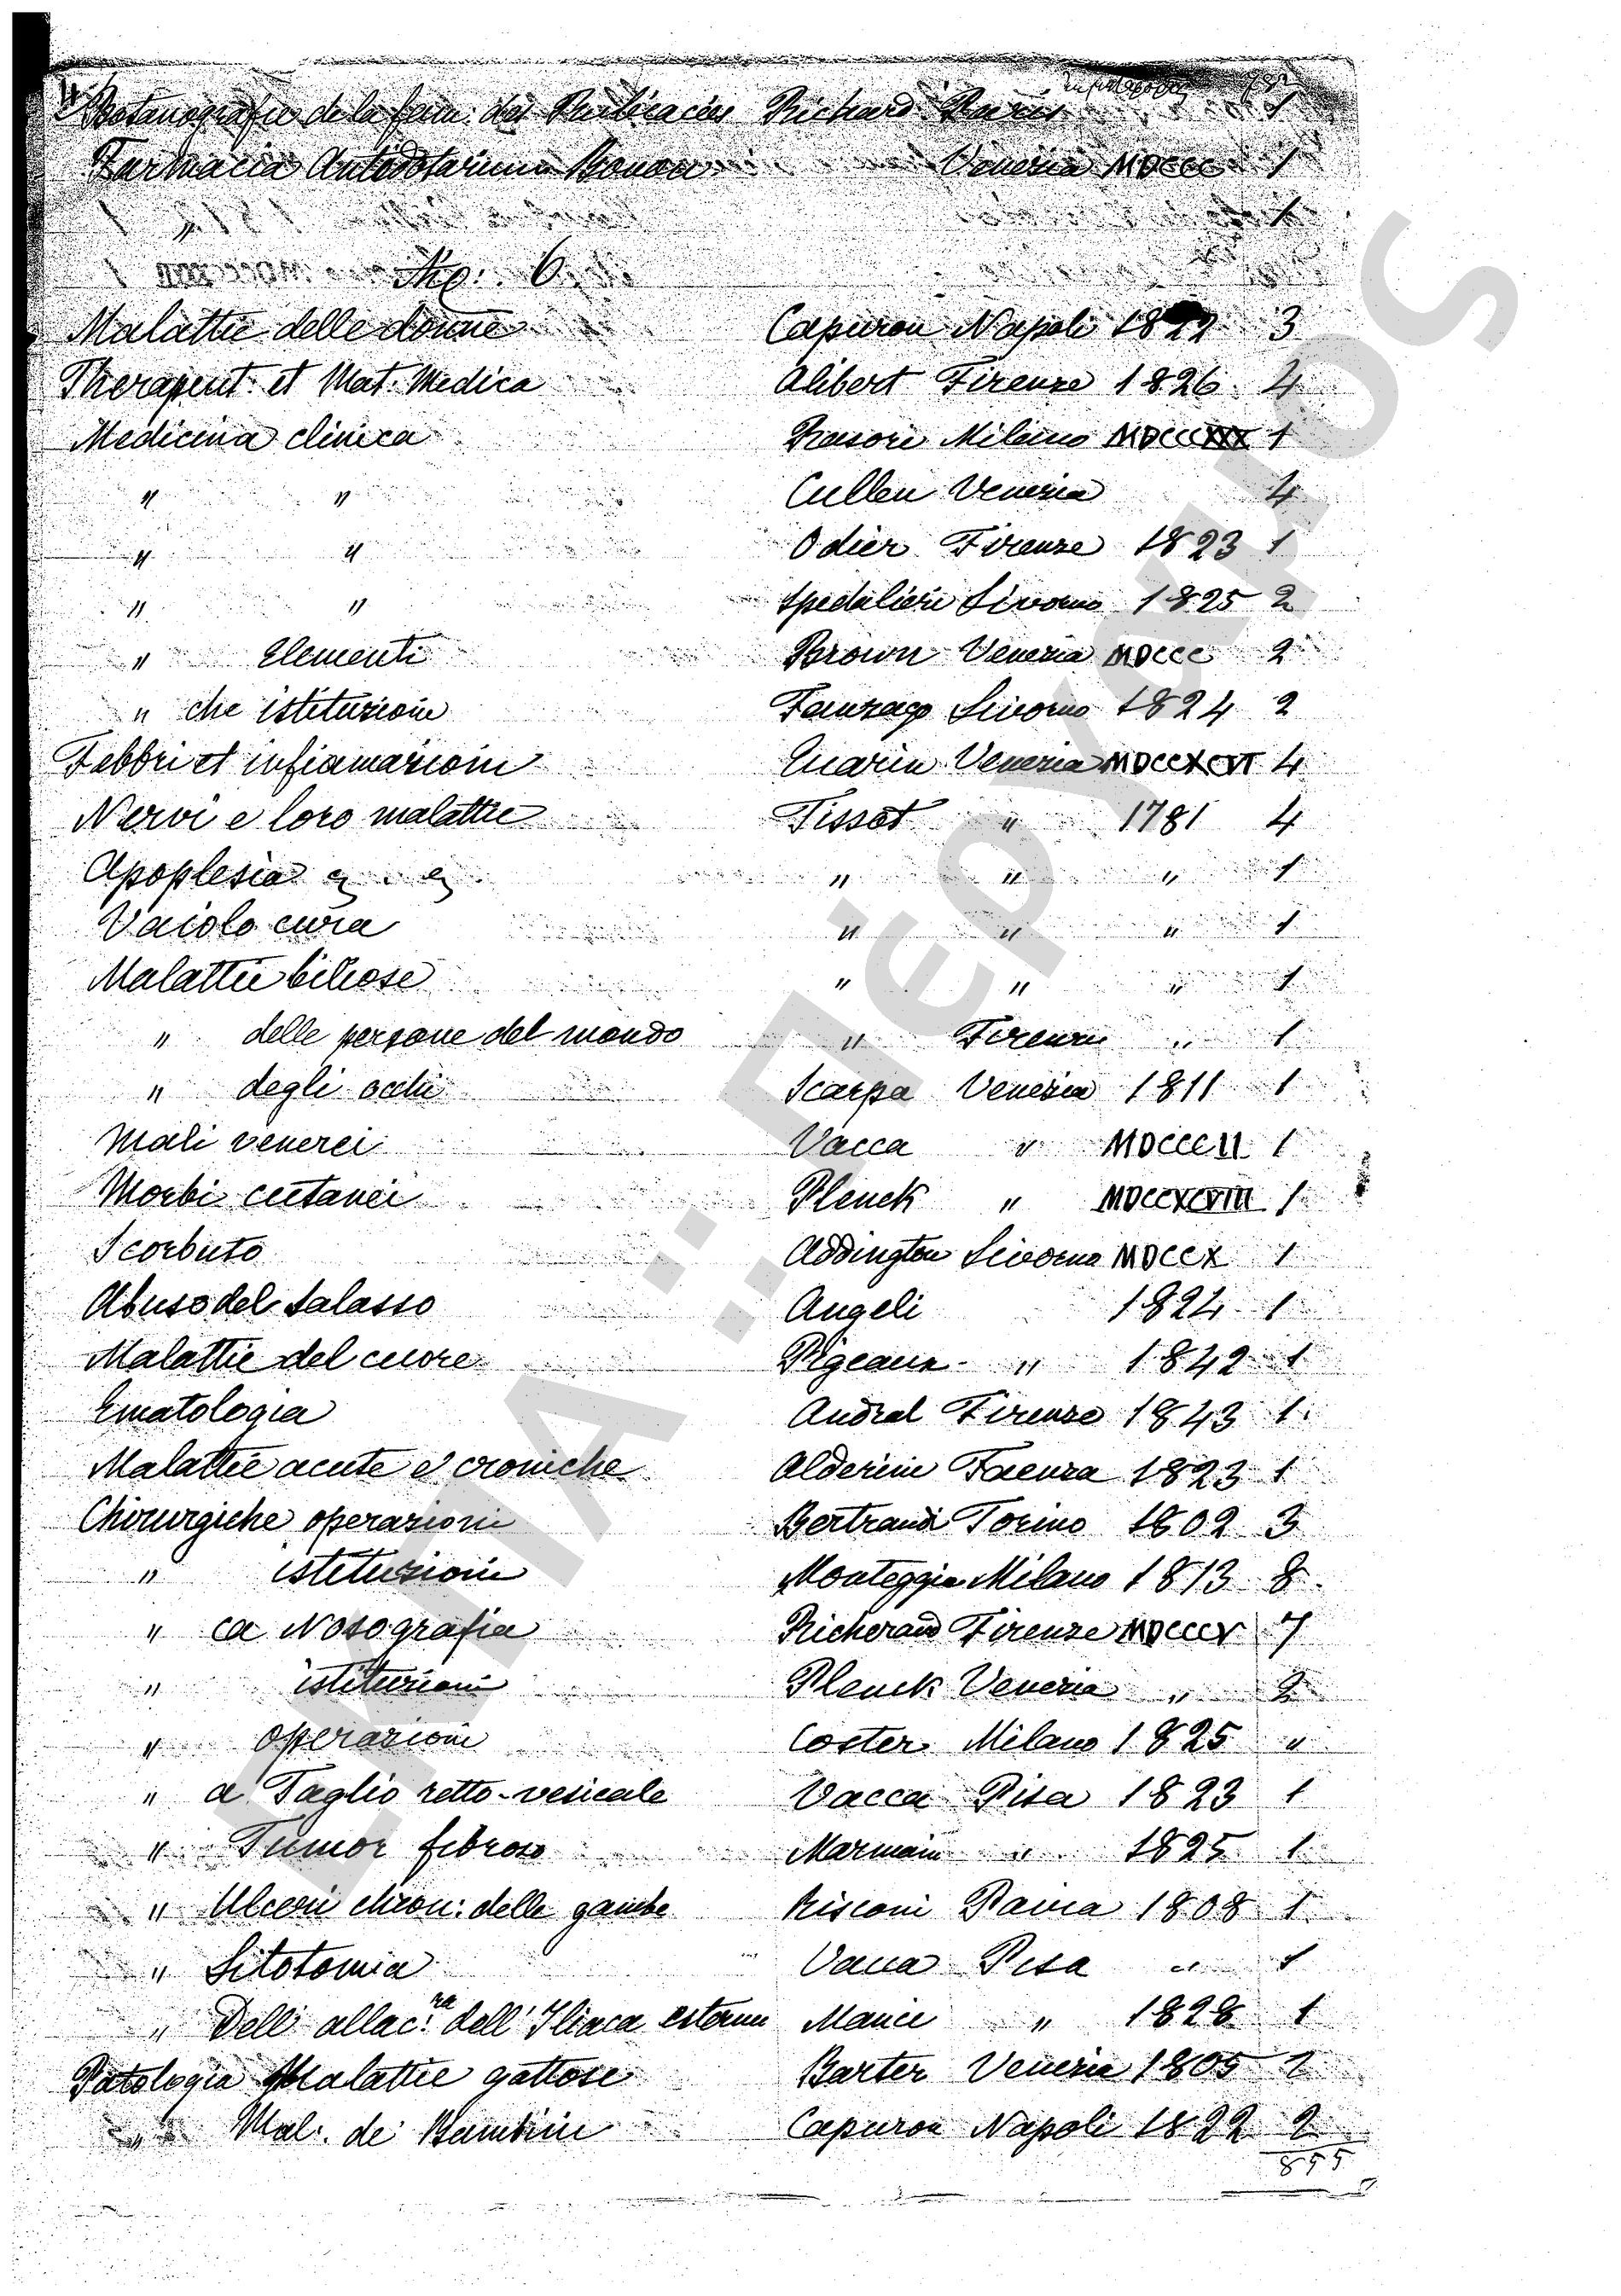 Botanografie de la fam. des Rubiacées Richard Paris 1
Farmacia Antidotarium Bonon Venezia MDCCC 1
" 1
6.
Malattie delle donne Capuron Napoli 1822 3
Therapeut. et Mat. Medica Alibert Firenze 1826 4
Medicina clinica Rasori Milano MDCCCXXX 1
" " Cullen Venezia 4
" " Odier Firenze 1823 1
" " Spedalieri Livorno 1825 2
" Elementi Brown Venezia MDCCC 2
" che istituzioni Fanzago Livorno 1824 2
Febbri et infiamazioni Quarin Venezia MDCCXCVI 4
Nervi e loro malattie Tissot " 1781 4
Apoplesia " " " 1
Vaiolo cura " " " 1
Malattie biliose " " " 1
" delle persone del mondo " Firenze " 1
" degli occhi Scarpa Venezia 1811 1
Mali venerei Vacca " MDCCCII 1
Morbi cutanei Plenck " MDCCXCVIII 1
Scorbuto Addington Livorno MDCCX 1
Abuso del Salasso Angeli 1824 1
Malattie del cuore Pigeaux " 1842 1
Ematologia Andral Firenze 1843 1.
Malattie acute e croniche Alderini Faenza 1823 1
Chirurgiche operazioni Bertrandi Torino 1802 3
" istituzioni Monteggia Milano 1813 8
" ca Nosografia Richerand Firenze MDCCCV 7
" istituzioni Plenck Venezia " 2
" operazioni Coster Milano 1825 "
" a Taglio retto-vesicale Vacca Pisa 1823 1
" Tumor fibroso Marmain " 1825 1
" Ulceri chron: delle gambe Risconi Pavia 1808 1
" Litotomia Vacca Pisa " 1
" Dell' allac:ra dell' Iliaca esterna Manci " 1828 1
Patologia Malattie gottose Barter Venezia 1805 1
" Mal: de' Bambini Capuron Napoli 1822 2
855
ΕΚΠΑ :: Πέργαμος